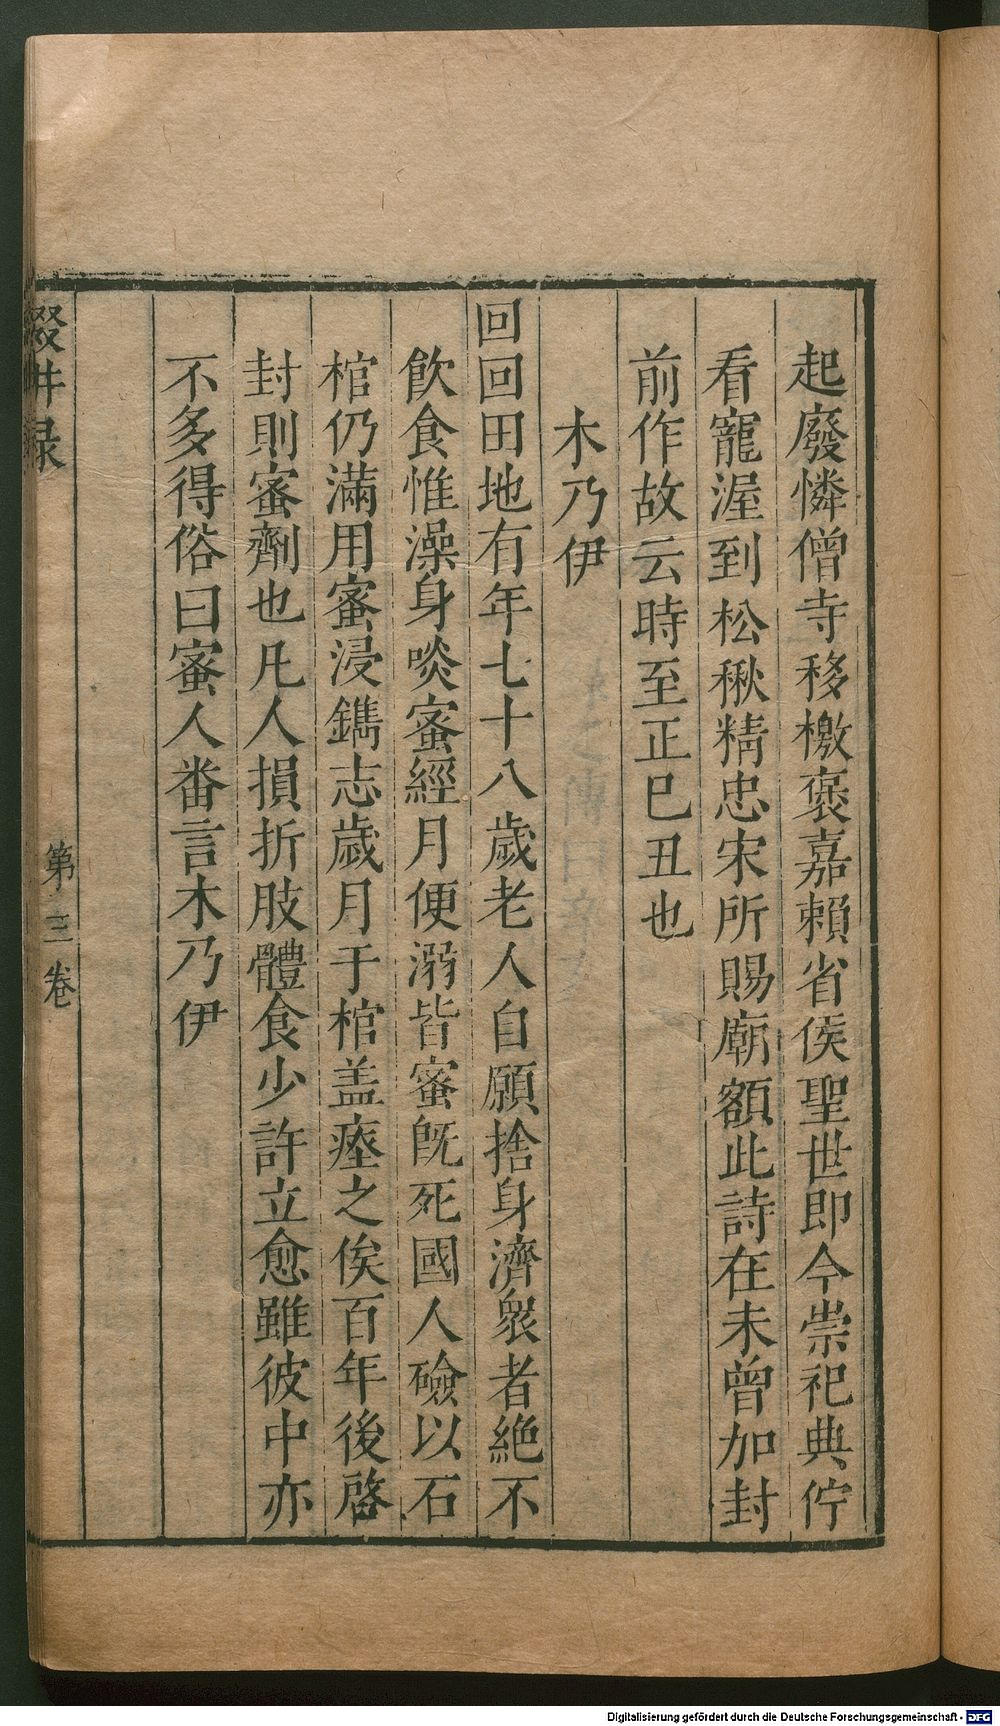 起廢憐僧寺移檄褒嘉賴省侯聖世即今崇祀典佇
看寵渥到松楸精忠宋所賜廟額此詩在未曾加封
前作故云時至正巳丑也
木乃伊
回回田地有年七十八歲老人自願捨身濟衆者絶不
飲食惟澡身啖蜜經月便溺皆蜜旣死國人殮以石
棺仍滿用蜜浸鐫志歲月于棺盖瘞之俟百年後啓
封則蜜劑也凡人損折肢體食少許立愈雖彼中亦
不多得俗曰蜜人番言木乃伊
第三卷
Digitalisierung gefördert durch die Deutsche Forschungsgemeinschaft - DFG